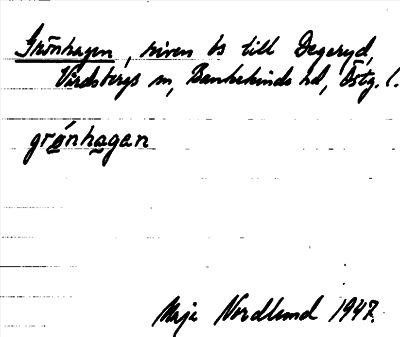 Grönhagen, riven bs till Degeryd,
Vårdsbergs sn, Bankekinds hd, Östg. l.
grönhagan
Maja Nordlund 1947.